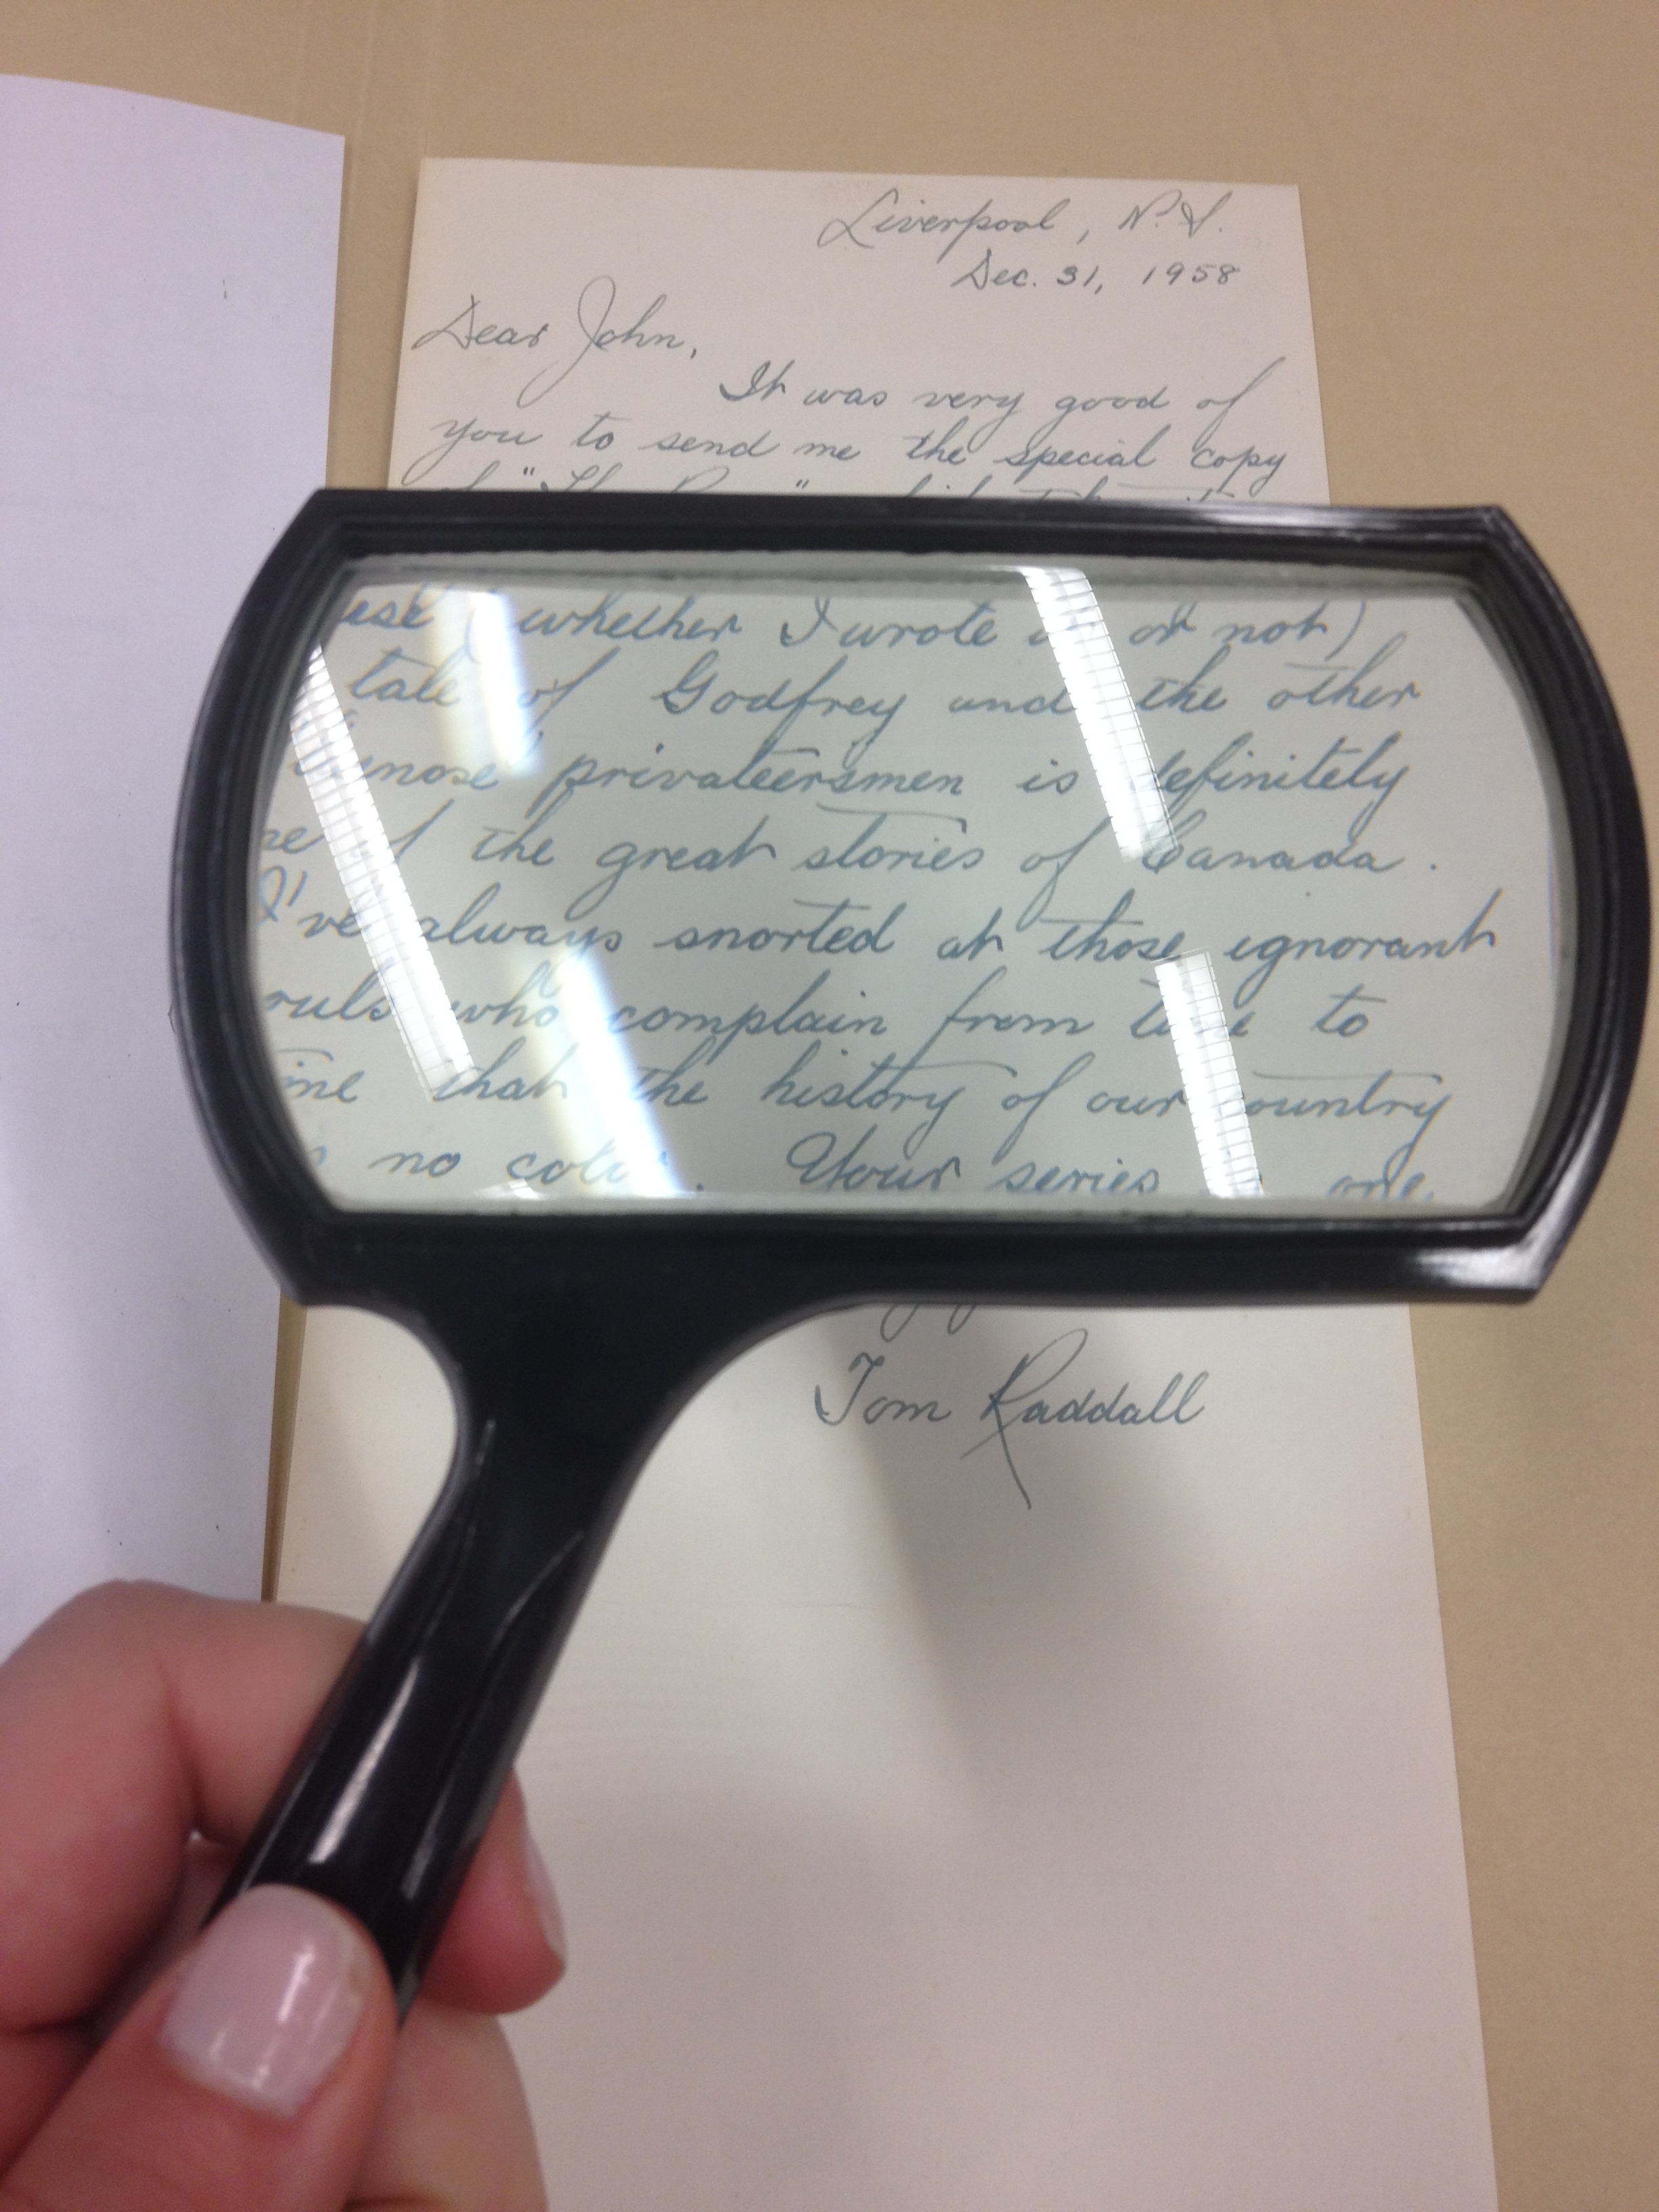 Liverpool, N.S.
Dec. 31, 1958
Dear John,
It was very good of
you to send me the special copy
(whether I wrote it or not)
tale of Godfrey and the other
privateersmen is definitely
of the great stories of Canada.
I've always snorted at those ignorant
who complain from time to
that the history of our country
no . Your series is one
Tom Raddall